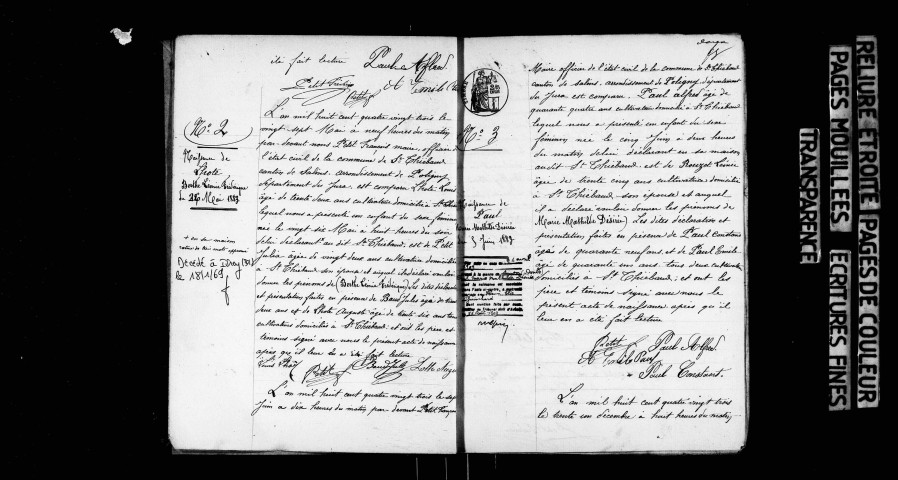 été fait lecture Paul Alfred
Petit François
N° 2
Naissance de
Lhote
Berthe Léonie Frédérique
Le 26 Mai 1883
+ en sa maison
Décédé à
le 18/1/69
L'an mil huit cent quatre vingt trois le
vingt sept Mai à neuf heures du matin
par devant nous Petit François maire, officier
l'état civil de la commune de St Thiébaud
canton de Salins arrondissement de Poligny
département du Jura, est comparu Lhote Louis
âgé de trente deux ans cultivateur domicilié à St Thiébaud
lequel nous a présenté un enfant du sexe féminin
née le vingt six Mai à huit heures du soir
déclarant au dit St Thiébaud, est de Petit
Julia âgée de vingt deux ans cultivatrice domiciliée
à St Thiébaud son épouse et auquel il a déclaré vouloir
donner les prénoms de (Berthe Léonie Frédérique) Les dites déclaration
et présentation faites en présence de Jules âgé de trente
deux ans et de Lhote Auguste âgé de trente six ans tous
cultivateurs domiciliés à St Thiébaud, et ont les père et
témoins signé avec nous le présent acte de naissance
après qu'il leur en a été fait lecture
Louis Lhote
Petit
L'an mil huit cent quatre vingt trois le sept
Juin à dix heures du matin par devant Petit François
N° 3
Naissance de
Paul
Marie Mathilde Désirée
5 Juin 1883
Maire officier de l'état civil de la commune de St Thiébaud
canton de Salins, arrondissement de Poligny département
du Jura est comparu Paul Alfred âgé de
quarante quatre ans cultivateur domicilié à St Thiébaud
lequel nous a présenté un enfant du sexe
féminin née le cinq Juin à deux heures
du matin, déclarant en sa maison
au dit St Thiébaud est de
âgée de trente cinq ans cultivatrice domiciliée
à St Thiébaud, son épouse et auquel
il a déclaré vouloir donner les prénoms de
(Marie Mathilde Désirée) Les dites déclaration et
présentation faites en présence de Paul Constant
âgé de quarante neuf ans et de Paul Emile
âgé de quarante un ans tous deux cultivateurs
domiciliés à St Thiébaud, et ont les
père et témoins signé avec nous le
présent acte de naissance après qu'il
leur en a été fait lecture
Petit Paul Alfred
Emile Paul
Paul Constant
L'an mil huit cent quatre vingt trois
le trente un décembre à huit heures du matin
RELIURE ETROITE PAGES DE COULEUR
PAGES MOUILLEES ECRITURES FINES
TRANSPARENCE